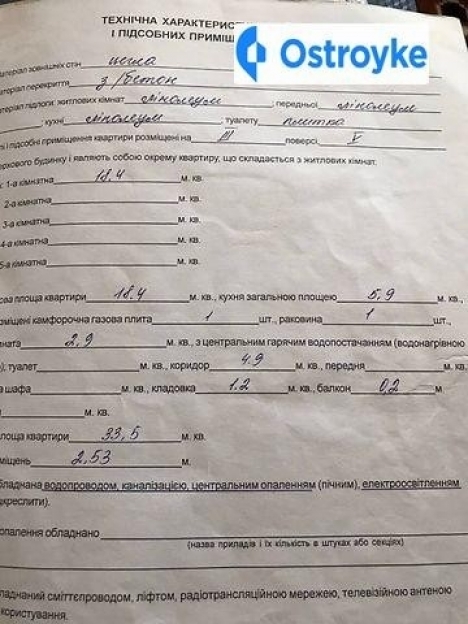 ТЕХНІЧНА ХАРАКТЕРИС
І ПІДСОБНИХ ПРИМІЩ
Ostroyke
атеріал зовнішніх стін цегла
атеріал перекриття з/бетон
атеріал підлоги: житлових кімнат лінолеум, передньої лінолеум
, кухні лінолеум, туалету плитка
і підсобні приміщення квартири розміщені на III поверсі V
ерхового будинку і являють собою окрему квартиру, що складається з житлових кімнат:
1-а кімнатна 18.4 м. кв.
2-а кімнатна м. кв.
3-а кімнатна м. кв.
4-а кімнатна м. кв.
5-а кімнатна м. кв.
ова площа квартири 18.4 м. кв., кухня загальною площею 5,9 м. кв.,
зміщені камфорочна газова плита 1 шт., раковина 1 шт.,
ната 2,9 м. кв., з центральним гарячим водопостачанням (водонагрівною
); туалет м. кв., коридор 4.9 м. кв., передня м. кв.
а шафа м. кв., кладовка 1.2 м. кв., балкон 0,2 м.
м. кв.
лоща квартири 33,5 м. кв.
міщень 2,53 м.
бладнана водопроводом, каналізацією, центральним опаленням (пічним), електроосвітленням
креслити).
опалення обладнано
(назва приладів і їх кількість в штуках або секціях)
ладнаний сміттєпроводом, ліфтом, радіотрансляційною мережею, телевізійною антеною
користування.